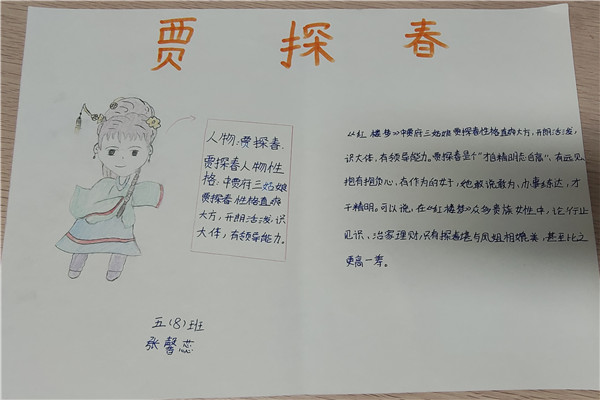 贾探春
人物:贾探春.
贾探春人物性
格:中贾府三姑娘
贾探春性格直爽
大方,开朗活泼,识
大体,有领导能力。
五(8)班
张馨蕊
《红楼梦》中贾府三姑娘贾探春性格直爽大方,开朗活泼,
识大体,有领导能力。贾探春是个"才自精明志自高",有远见
抱有抱负心、有作为的女子,她敢说敢为、办事练达,才
干精明。可以说,在《红楼梦》众多贵族女性中,论行止
见识、治家理财,只有探春堪与凤姐相媲美,甚至比之
更高一筹。